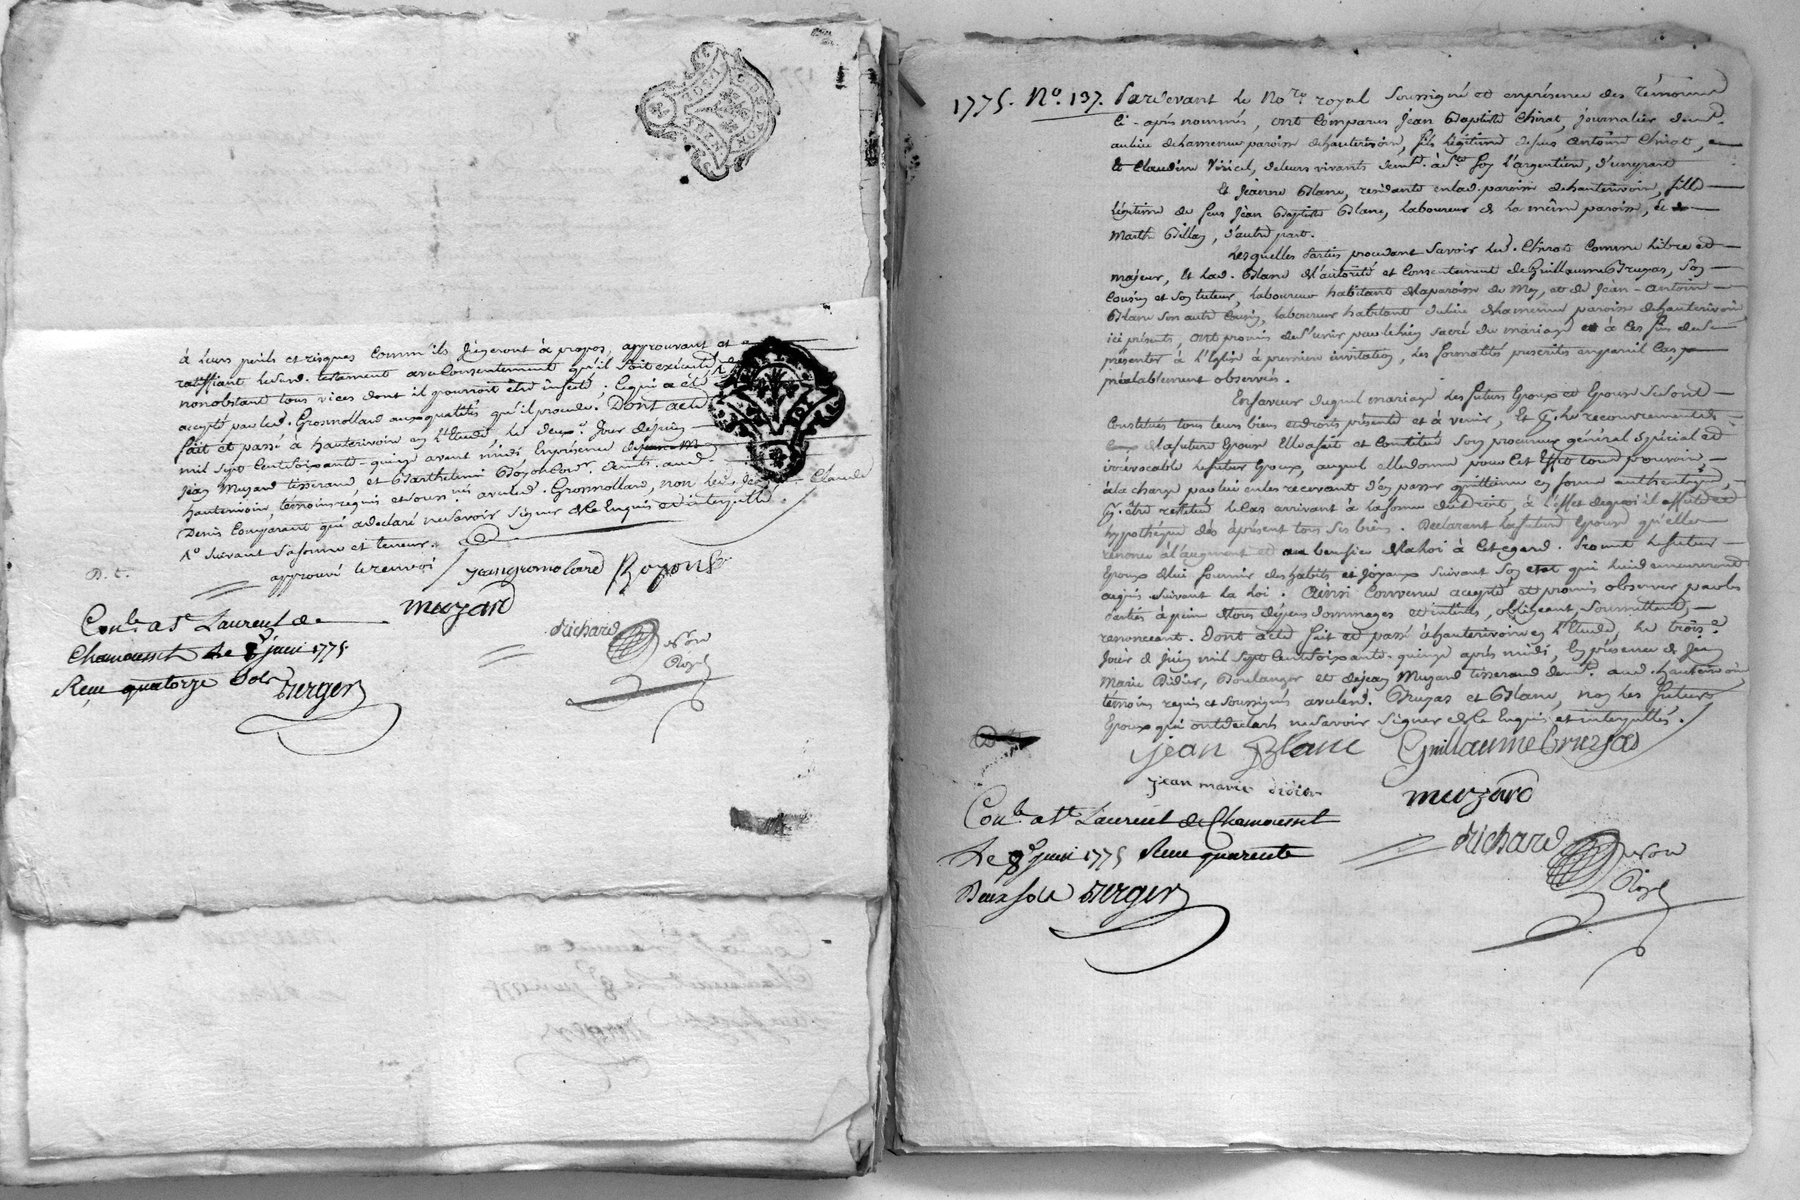 à leurs perils et risques comm'ils jugeront à propos, approuvant et
ratiffiant led. testament avec consentement qu'il soit exécuté,
nonobstant tous vices dont il pourroit être infecté; Ce qui a été
accepté par led. Gromollard aux qualités qu'il procede. Dont acte
fait et passé à hauterivoire en l'Etude le deux. Jour de juin
mil sept Cent soixante-quinze avant midi En présence de
Jean Muzard tisserand, et Barthelemi Boyon demts. aud.
hauterivoire, temoins requis et soussignés avec led. Gromollard, non led. Claude
Denis Comparant qui a declaré ne savoir signer de ce Enquis et interpellé
suivant sa forme et teneur.
approuvé le renvoi
jean gromolard Boyon
muzard
Conlé a St Laurent de
Chamousset le 8 juin 1775
Reçu quatorze sols Berger
Richard
Nore
Royl
1775. No. 137. Pardevant le Nore royal soussigné et en présence des témoins
ci-après nommés, ont comparus Jean Baptiste Chirat, journalier demt.
au lieu de hamenue paroisse de hauterivoire, fils légitime de feus Antoine Chirat,
et Claudine Viricel, de leurs vivants demt. à St. foy l'argentiere, d'une part
Et Jeanne Blanc, residante en lad. paroisse de hauterivoire, fille
légitime de feus Jean Baptiste Blanc, laboureur de la même paroisse, et
Marthe Billay, d'autre part.
Lesquelles Parties procedant savoir led. Chirat comme libre et
majeur, Et lad. Blanc de l'autorité et Consentement de Guillaume Bruyas, son
Cousin et son tuteur, laboureur habitant de la paroisse de Meys, et de Jean-Antoine
Blanc son autre Cousin, laboureur habitant du lieu de hamenue paroisse de hauterivoire
ici présents, ont promis de s'unir par le lien sacré du mariage et à ces fins de se
présenter à l'Eglise à premiere invitation, les formalités prescrites en pareil Cas,
préalablement observées.
En faveur duquel mariage les futurs Epoux et Epouse se sont
Constitués tous leurs biens et droits présents et à venir, Et pr. le recouvrement de
de la future Epouse Elle a fait et Constitué son procureur général spécial et
irrévocable le futur Epoux, auquel elle donne pour cet Effet tout pouvoir
à la charge par lui en les recevant d'en passer quittance en forme authentique,
pr. être restitué le Cas arrivant à la forme du droit, à l'Effet de quoi il affecte et
hypothéque dès àprésent tous ses biens. Declarant la future Epouse qu'elle
renonce à l'augment et au benefice de la loi à cet egard. Promet le futur
Epoux de lui fournir des habits et joyaux suivant son etat qui lui demeureront
acquis suivant la loi. Ainsi Convenu accepté et promis observer par les
Parties à peine de tous dépens dommages et intérêts, obligeant, soumettant,
renonceant. Dont acte fait et passé à hauterivoire en l'Etude le troise.
Jour de juin mil sept Cent soixante-quinze après midi, En présence de Jean
Marie Didier, Boulanger et de jean Muzard tisserand demts. aud. hauterivoire
témoins requis et soussignés avec led. Bruyas et Blanc, non les futurs
Epoux qui ont declarés ne savoir signer de ce Enquis et interpellés.
jean Blanc Guillaume Bruyas
jean marie didier
muzard
Conlé a St Laurent de Chamousset
Le 8 juin 1775 Reçu quarente
Deux sols Berger
Richard
Nore
Royl